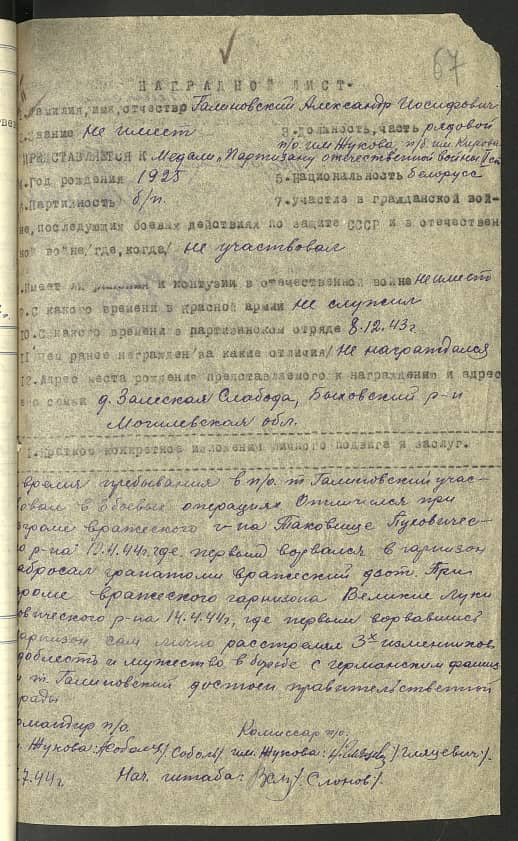 67
НАГРАДНОЙ ЛИСТ.
Фамилия, имя, отчество Галиновский Александр Иосифович
звание не имеет 3. Должность, часть рядовой
п/о им Жукова, п/б. им Кирова
ПРЕДСТАВЛЯЕТСЯ К Медали "Партизану отечественной войны" I ст
4. Год рождения 1925 5. Национальность белорусс
6. Партийность б/п. 7. Участие в гражданской вой-
не, последующих боевых действиях по защите СССР и в отечествен
ной войне /где, когда/ не участвовал
Имеет ли ранения и контузии в отечественной войне не имеет
9. С какого времени в красной армии не служил
10. С какого времени в партизанском отряде 8.12.43г
11. Чем ранее награжден /за какие отличия/ не награждался
12. Адрес места рождения представляемого к награждению и адрес
его семьи д. Залеская Слабода, Быховский р-н
Могилевская обл.
1. Краткое конкретное изложение личного подвига и заслуг.
время пребывания в п/о. т. Галиновский учас-
вовал в боевых операциях. Отличился при
вражеского г-на Таковище Пуховичес-
о р-на 12.4.44г, где первым ворвался в гарнизон
абросал гранатами вражеский дзот. При
роме вражеского гарнизона Великие Луки
овического р-на 14.4.44г, где первым ворвавшись
гарнизон сам лично расстрелял 3х изменников
доблесть и мужество в борьбе с германским фашиз
т. Галиновский достоен правительственной
рады
омандир п/о. Комиссар п/о.
Жукова: /Соболь/ им. Жукова: /Гляцевич/.
7.44г. Нач. штаба: /Слонов/.